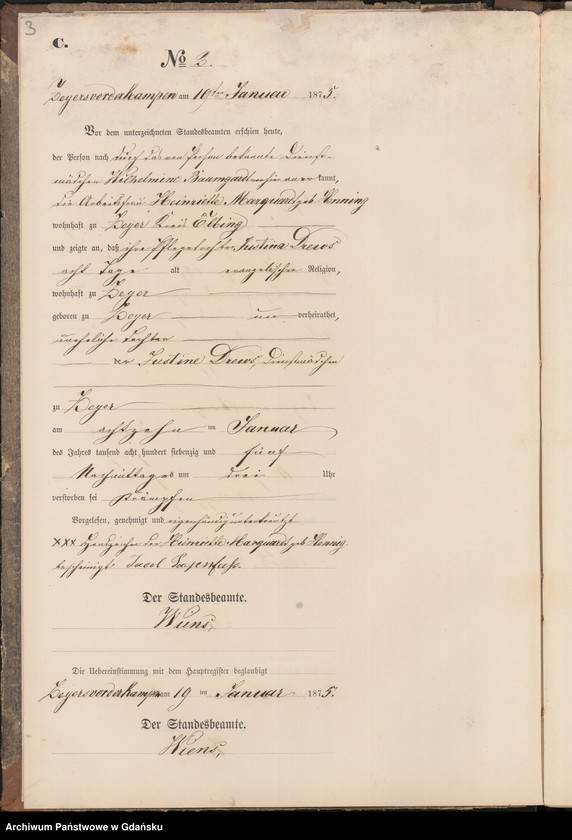 3
C.
No 3.
Zeyersvorderkampen am 19ten Januar 1875.
Vor dem unterzeichneten Standesbeamten erschien heute,
der Person nach durch das von Person bekannte Dienst-
mädchen Wilhelmine Baumgardt anerkannt,
die Arbeitsfrau Heinriette Marquardt geb. Henning
wohnhaft zu Zeyer Kreis Elbing
und zeigte an, daß ihre Pflegetochter Justina Drews
acht Tage alt evangelischer Religion,
wohnhaft zu Zeyer
geboren zu Zeyer un verheirathet,
uneheliche Tochter
der Justine Drews, Dienstmädchen
zu Zeyer
am achtzehn ten Januar
des Jahres tausend acht hundert siebenzig und fünf
Nachmittags um drei Uhr
verstorben sei Krämpfen
Vorgelesen, genehmigt und
XXX Handzeichen der Heinriette Marquardt geb. Hennig.
bescheinigt Jacob
Der Standesbeamte.
Wiens,
Die Uebereinstimmung mit dem Hauptregister beglaubigt
Zeyersvorderkampen am 19 ten Januar 1875.
Der Standesbeamte.
Wiens,
Archiwum Państwowe w Gdańsku